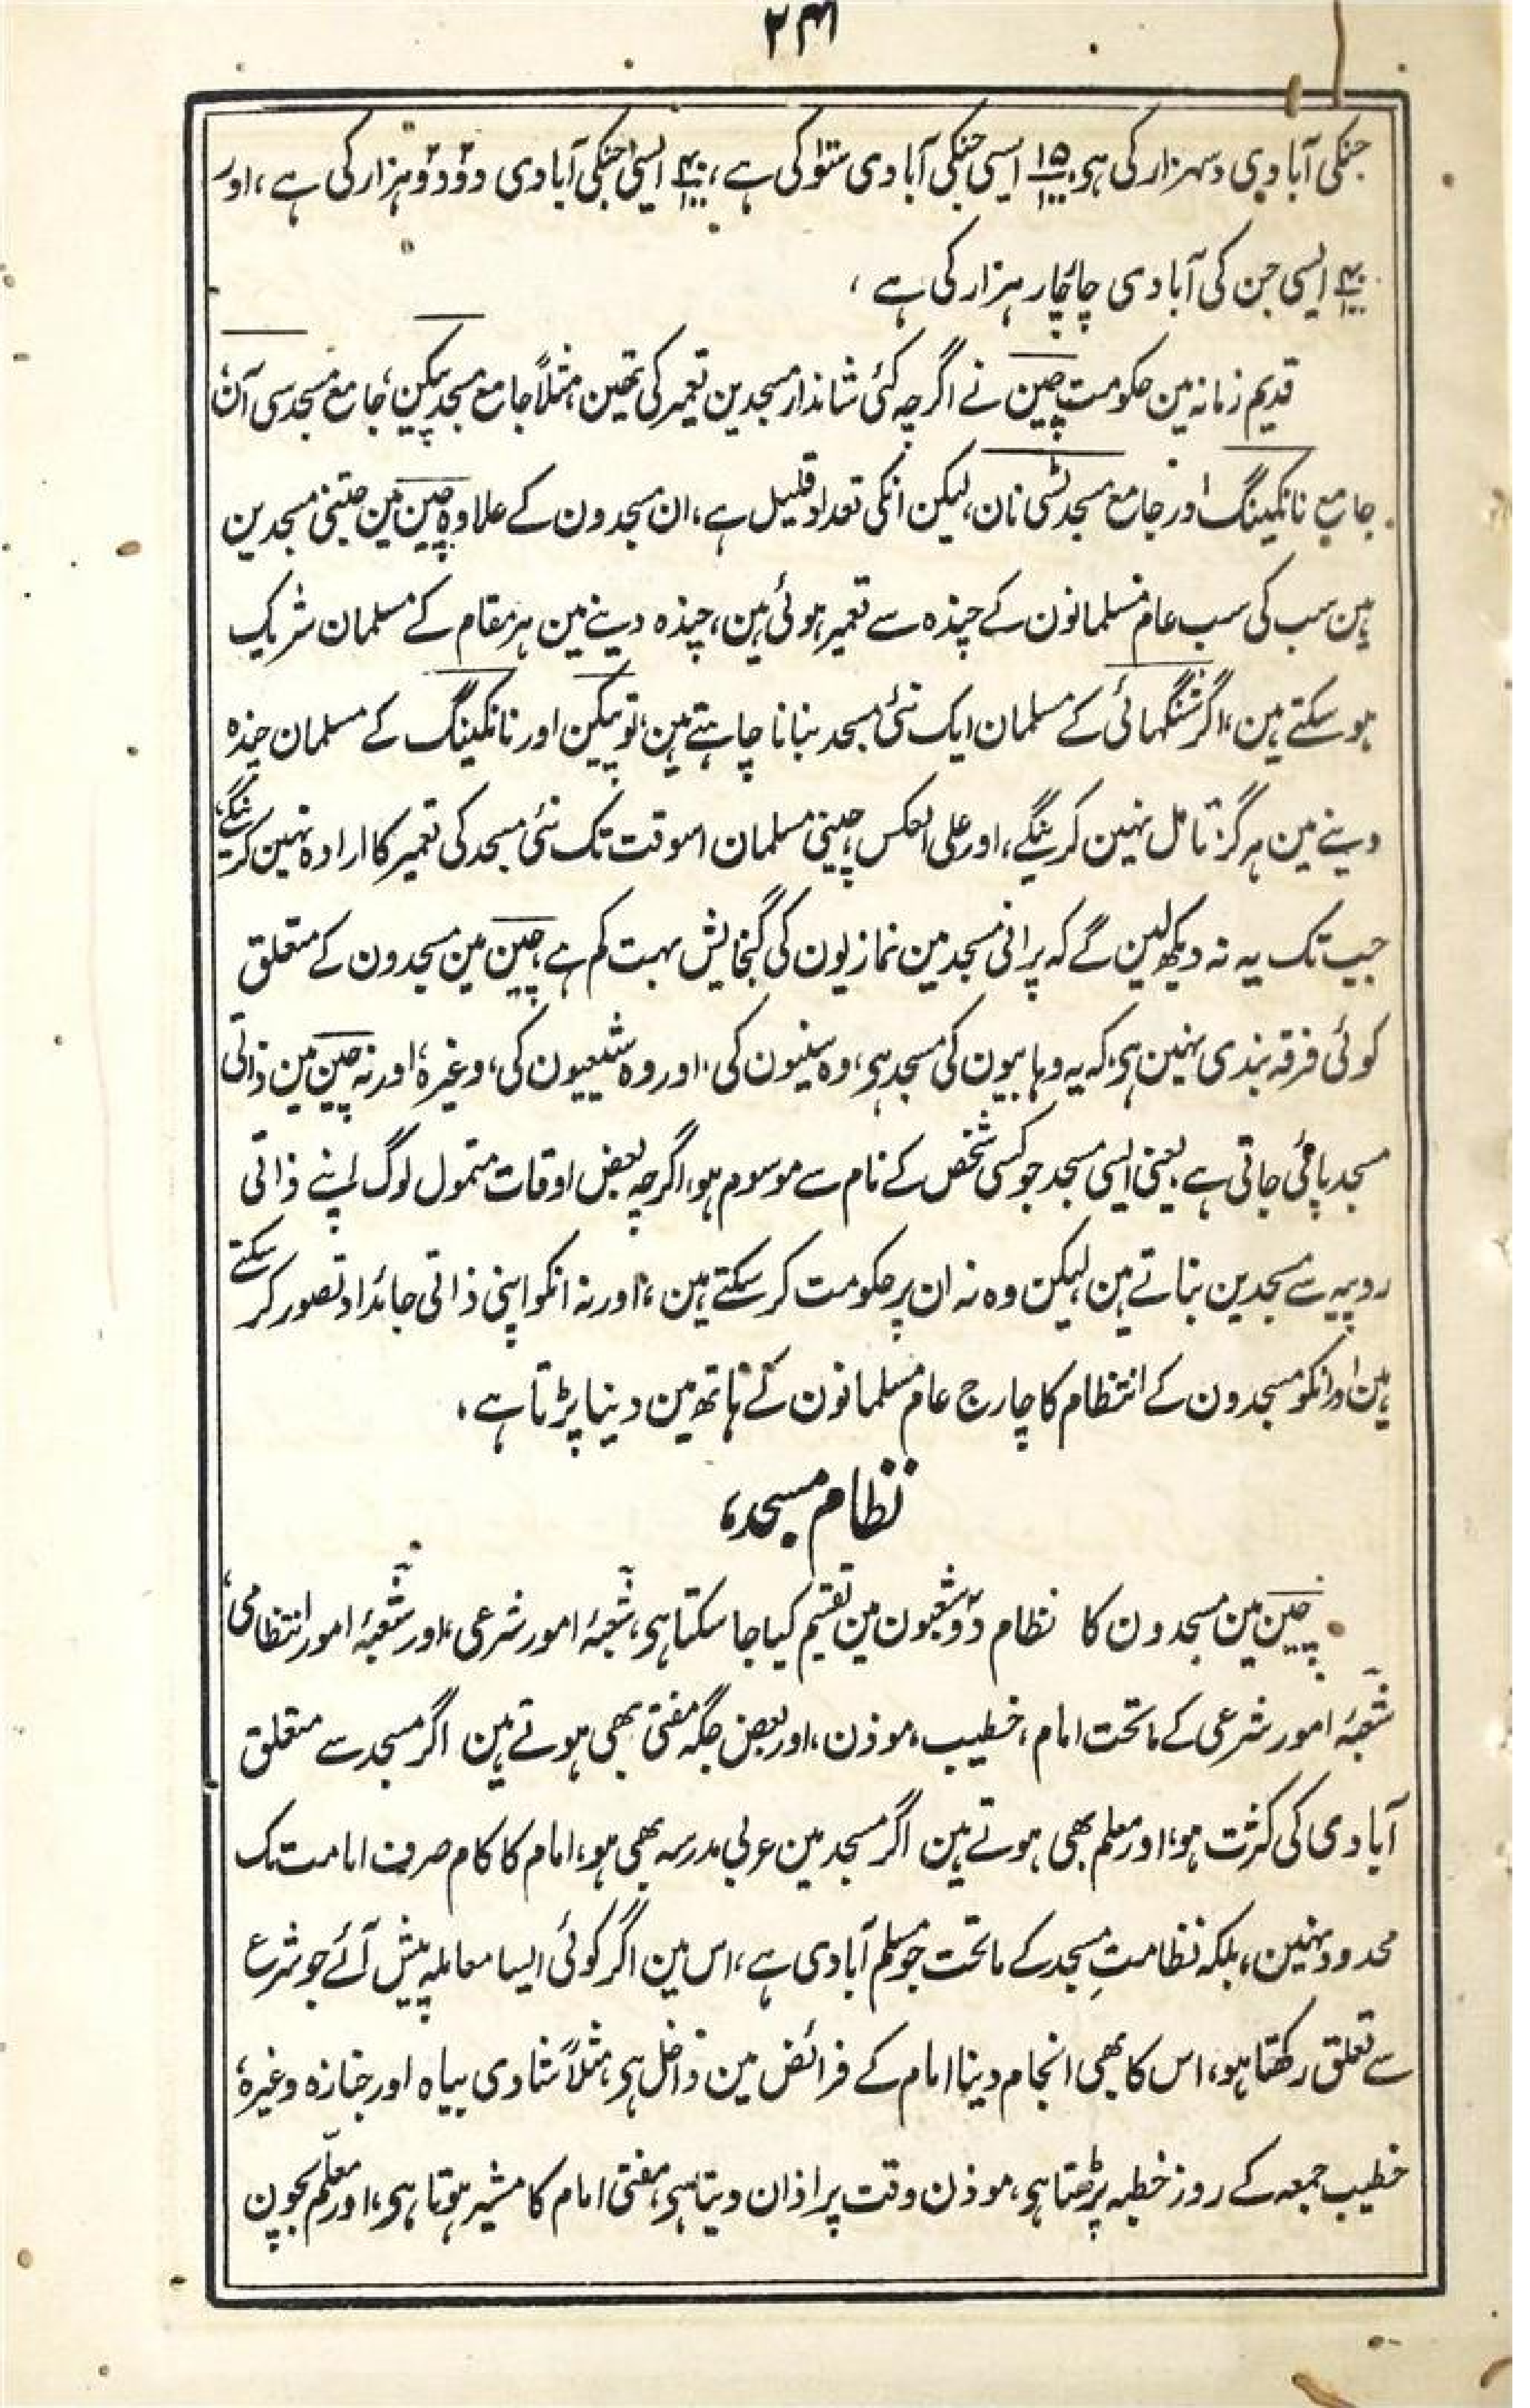 ۲۴۱
جنکی آبادی دسہزار کی ہی، ۱۵/۱۰۰ ایسی جنکی آبادی ستو کی ہے، ۴/۱۰۰ ایسی جنکی آبادی دو دو ہزار کی ہے، اور
۴/۱۰۰ ایسی جن کی آبادی چاچار ہزار کی ہے،
قدیم زمانہ مین حکومت چین نے اگرچہ کئی شاندار مسجدین تعمیر کی تھین، مثلاً جامع مسجد پیکین، جامع مسجد سی آن،
جامع نانکینگ اور جامع مسجد ٹسی نان، لیکن انکی تعداد قلیل ہے، ان مسجدون کے علاوہ چین مین جتنی مسجدین
ہین سب کی سب عام مسلمانون کے چندہ سے تعمیر ہوئی ہین، چندہ دینے مین ہر مقام کے مسلمان شریک
ہو سکتے ہین، اگر شنگھائی کے مسلمان ایک نئی مسجد بنانا چاہتے ہین، تو پیکین اور نانکینگ کے مسلمان چندہ
دینے مین ہرگز تامل نہین کرینگے، اور علی العکس، چینی مسلمان اسوقت تک نئی مسجد کی تعمیر کا ارادہ نہین کرینگے،
جب تک یہ نہ دیکھ لین گے کہ پرانی مسجد مین نمازیون کی گنجایش بہت کم ہے، چین مین مسجدون کے متعلق
کوئی فرقہ بندی نہین ہی، کہ یہ وہابیون کی مسجد ہی، وہ سنیون کی، اور وہ شیعیون کی، وغیرہ، اور نہ چین مین ذاتی
مسجد پائی جاتی ہے یعنی ایسی مسجد جو کسی شخص کے نام سے موسوم ہو، اگرچہ بعض اوقات متمول لوگ اپنے ذاتی
روپیہ سے مسجدین بناتے ہین لیکن وہ نہ ان پر حکومت کر سکتے ہین، اور نہ انکو اپنی ذاتی جائداد تصور کر سکتے
ہین اور انکو مسجدون کے انتظام کا چارج عام مسلمانون کے ہاتھ مین دینا پڑتا ہے،
نظام مسجد،
چین مین مسجدون کا نظام دو شعبون مین تقسیم کیا جا سکتا ہی، شعبۂ امور شرعی، اور شعبۂ امور انتظامی،
شعبۂ امور شرعی کے ماتحت امام، خطیب، موذن، اور بعض جگہ مفتی بھی ہوتے ہین اگر مسجد سے متعلق
آبادی کی کثرت ہو، اور معلم بھی ہوتے ہین اگر مسجد مین عربی مدرسہ بھی ہو، امام کا کام صرف امامت تک
محدود نہین، بلکہ نظامتِ مسجد کے ماتحت جو مسلم آبادی ہے، اس مین اگر کوئی ایسا معاملہ پیش آئے جو شرع
سے تعلق رکھتا ہو، اس کا بھی انجام دینا امام کے فرائض مین داخل ہی، مثلاً شادی بیاہ اور جنازہ وغیرہ،
خطیب جمعہ کے روز خطبہ پڑھتا ہی، موذن وقت پر اذان دیتا ہی، مفتی امام کا مشیر ہوتا ہی، اور معلّم بچون